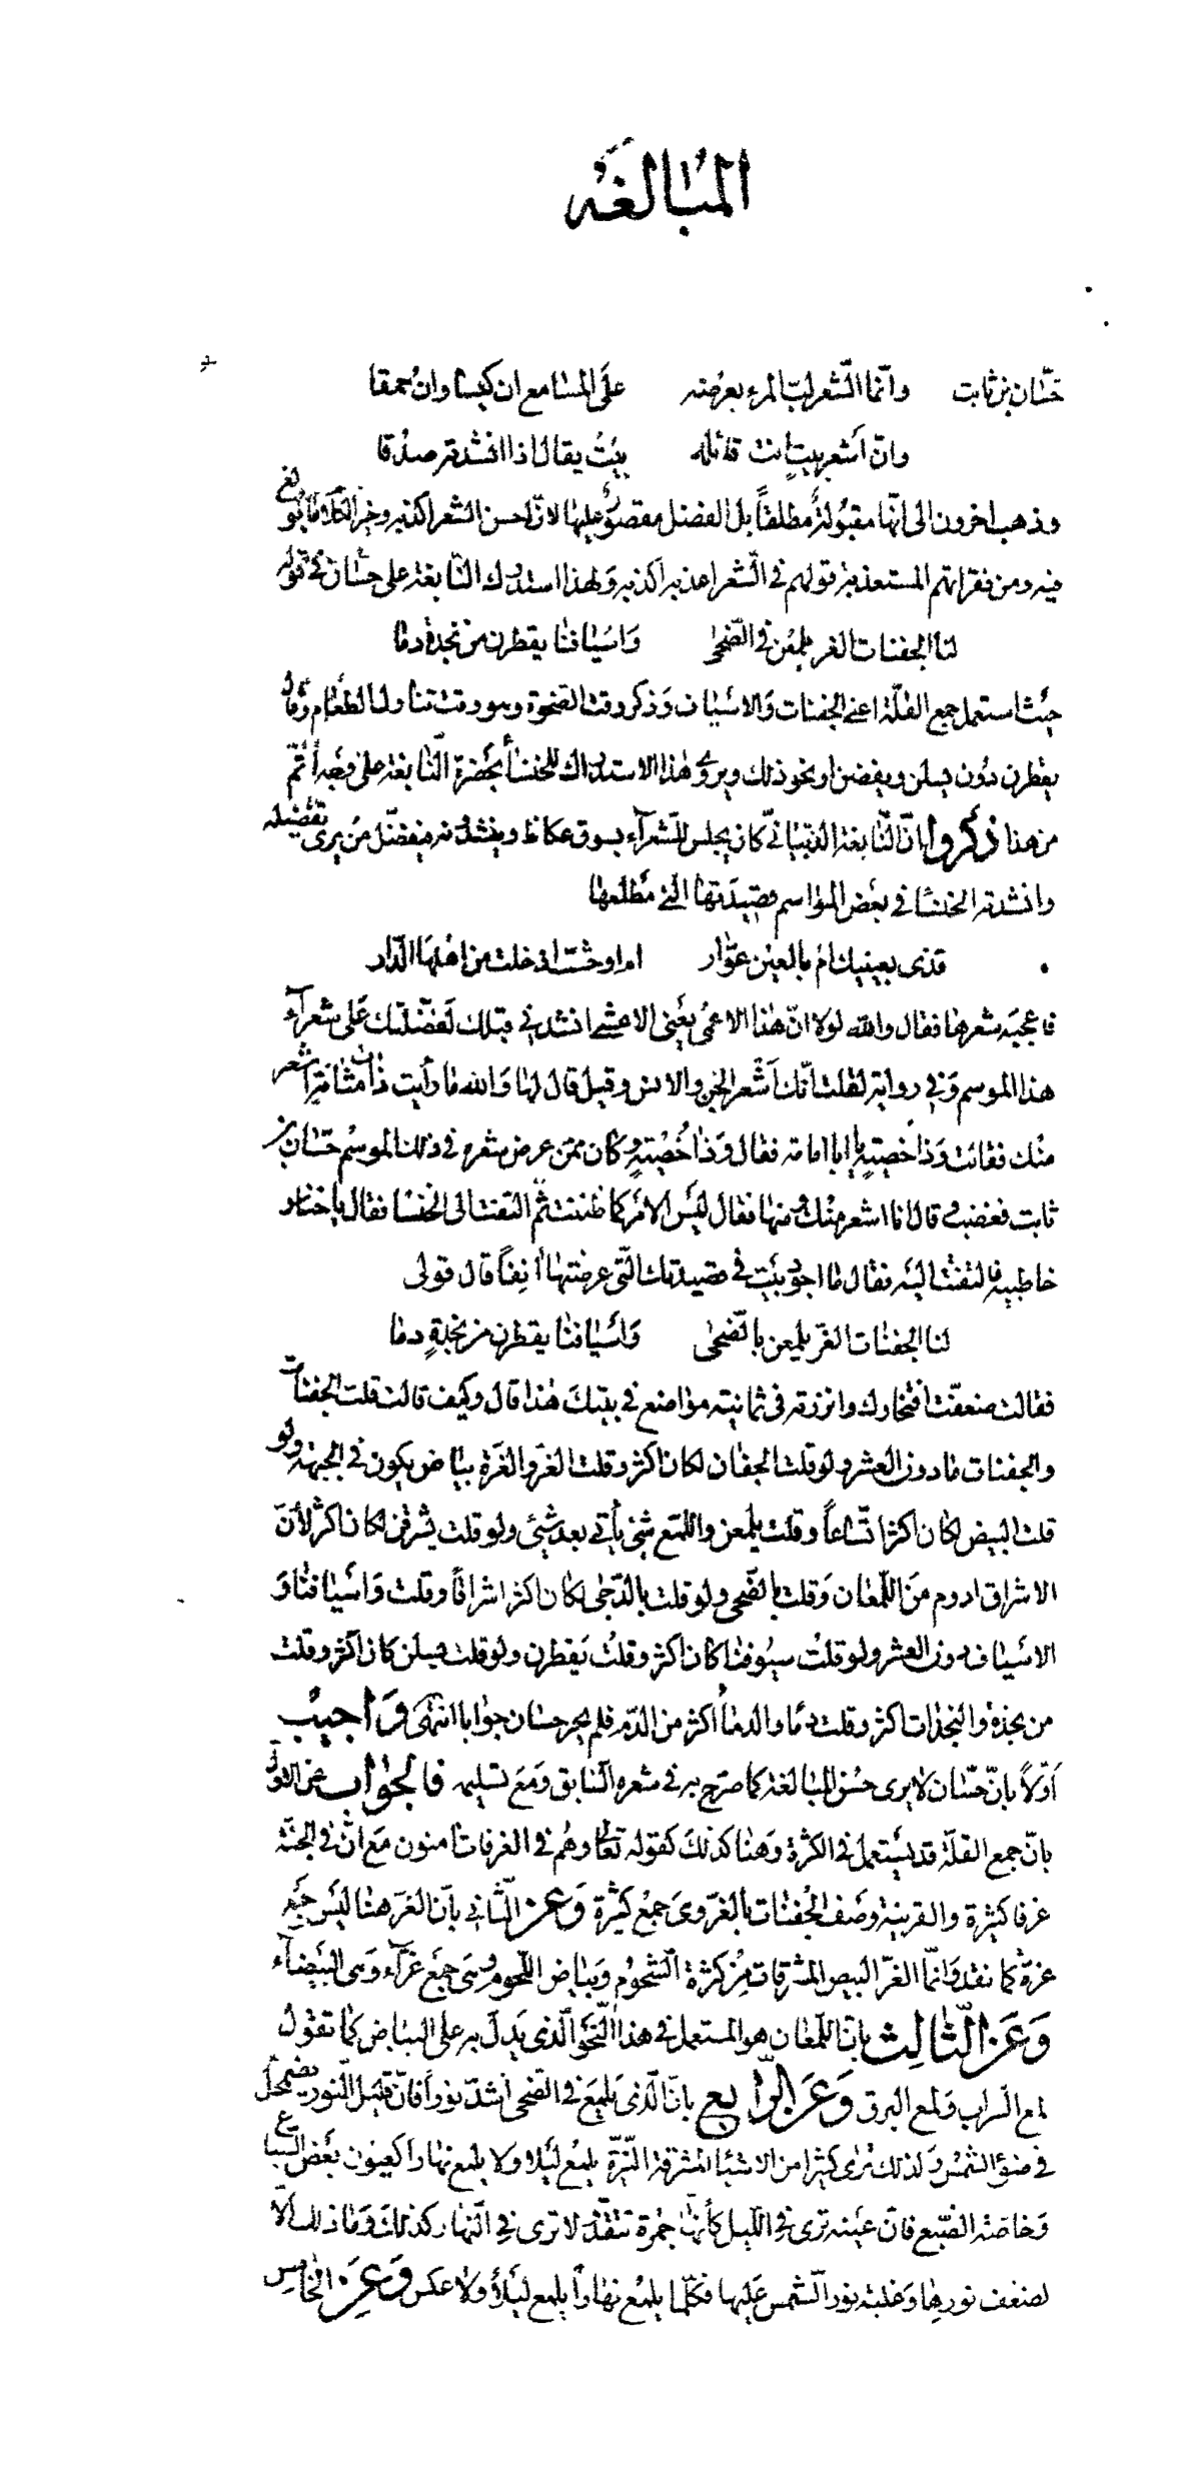 المبالغة
حسّان بن ثابت وانّما الشّعر لبّ المرء يعرضه على المسامع ان كيسا وان حمقا
وانّ أشعر بيت انت قائله بيت يقال اذا انشدته صدقا
وذهب اخرون الى انّها مقبولة مطلقاً بل الفضل مقصور عليها لانّ احسن الشعر اكذبه وخير الكلام ما بولغ
فيه ومن فقراتهم المستعذبة قولهم في الشّعر اعذبه اكذبه ولهذا استدرك النّابغة على حسّان في قوله
لنا الجفنات الغر يلمعن في الضّحى وَاسيافنا يقطرن من نجدة دما
حيث استعمل جمع القلّة اعني الجفنات وَالاسياف وَذكر وقت الضّحوة وهو وقت تناول الطّعام وقال
يقطرن دُون يسلن ويفضن او نحو ذلك ويروى هٰذا الاستدراك للخنسأ بحَضرة النّابغة على وجه أتمّ
من هذا ذكروا انّ النّابغة الذّبيانيّ كان يجلس للشّعرآء بسوق عكاظ وينشدُونه فيفضّل من يرى تفضيله
وانشدته الخنسا في بعض المواسم قصيدتها التي مطلعها
قذى بعينيك ام بالعين عوّار ام اوحشت اذ خلت من اهلها الدّار
فاعجبه شعرها فقال والله لولا انّ هٰذا الاعمى يعني الاعشى انشدني قبلك لفضّلتك على شعرآء
هذا الموسم وَفي رواية لقلت انّك اَشعر الجن والانس وقيل قال لها وَالله ما رأيت ذات مثانة اشعر
منك فقالت وَذا خصية يا ابا امامة فقال وَذا خُصية وكان ممن عرض شعره في ذلك الموسم حسّان بن
ثابت فغضب وقال انا اشعر منك ومنها فقال ليس الامر كما ظننت ثم التفت الى الخنسا فقال يا خناس
خاطبيه فالتفتت اليه فقال ما اجود بيت في قصيدتك التّي عرضتها آنفاً قال قولى
لنا الجفنات الغرّ يلمعن بالضّحى وَاسيافنا يقطرن من نجدةٍ دما
فقالت ضعفّت افتخارك وانزرته في ثمانية مواضع في بيتك هٰذا قال وكيف قالت قلت الجفنات
والجفنات ما دون العشر ولو قلت الجفان لكان اكثر وقلت الغرّ والغرّة بياض يكون في الجبهة ولو
قلت البيض لكان اكثر اتّساعاً وقلت يلمعن واللّمع شيئ يأتي بعد شيئ ولو قلت يشرقن لكان اكثر لأنّ
الاشراق ادوم من اللّمعان وَقلت بالضّحى ولو قلت بالدّجى لكان اكثر اشراقاً وقلت وَاسيافنا وَ
الاسياف دون العشر ولو قلت سيُوفنا كان اكثر وقلت يَقطرن ولو قلت يسلن كان اكثر وقلت
من نجدة والنجدات اكثر وقلت دما والدمأ اكثر من الدّم فلم يحر حسان جوابا انتهى وَاجيب
اوّلاً بانّ حسّان لا يرى حسن المبالغة كما صرّح به في شعره السّابق وَمَع تسليمه فالجواب عن الاوّل
بانّ جمع القلّة قد يستعمل في الكثرة وَهنا كذلك كقوله تعالى وهُم في الغرفات آمنون مَع انّ في الجنّة
غرفا كثيرة والقرينة وصف الجفنات بالغرّ وهي جمع كثرة وَعن الثّاني بانّ الغرّ هنا ليس جمع
غرة كما نقد وَانّما الغرّ البيض المشرقات من كثرة الشّحوم وَبياض اللّحوم وهي جمع غرّآء وَهى البَيضآء
وَعَن الثّالث بانّ اللّمعان هو المستعمل في هذا النّحو الّذي يدلّ به على البياض كما تقول
لمع السّراب وَلمع البرق وَعَن الرّابع بانّ الّذي يَلمع في الضّحى اشدّ نوراً فانّ قليل النّور يضمحلّ
في ضوء الشّمس وَلذلك نرى كثيرا من الاشيا المشرقة النّيّرة يلمع ليلا ولا يلمع نهاراً كعيون بعض السباع
وَخاصّة الضّبع فانّ عينه ترى في اللّيل كأنها جمرة تتقّد لا ترى في النّهار كذلك وَما ذلك الاّ
لضعف نورها وَغلبة نور الشّمس عليها فكلّما يلمع نهاراً يلمع ليلاً ولا عكس وَعن الخامس